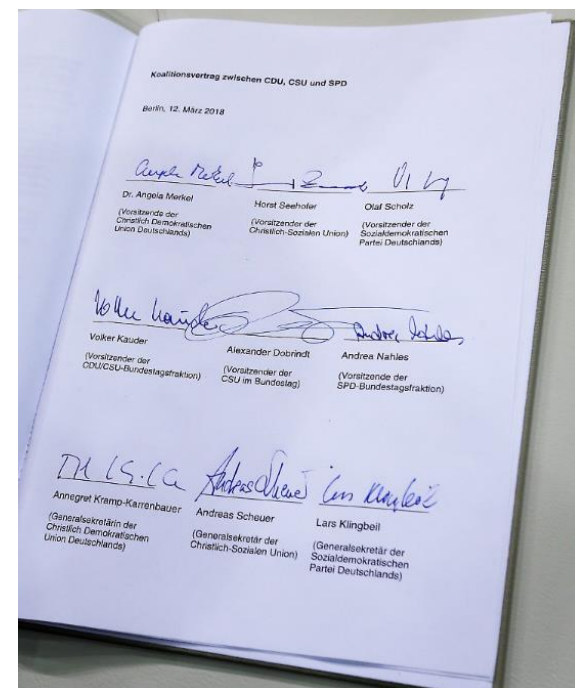 Koalitionsvertrag zwischen CDU, CSU und SPD
Berlin, 12. März 2018
Angela Merkel
Dr. Angela Merkel
(Vorsitzende der
Christlich Demokratischen
Union Deutschlands)
Horst Seehofer
(Vorsitzender der
Christlich-Sozialen Union)
Olaf Scholz
(Vorsitzender der
Sozialdemokratischen
Partei Deutschlands)
Volker Kauder
Andrea Nahles
Volker Kauder
(Vorsitzender der
CDU/CSU-Bundestagsfraktion)
Alexander Dobrindt
(Vorsitzender der
CSU im Bundestag)
Andrea Nahles
(Vorsitzende der
SPD-Bundestagsfraktion)
Andreas Scheuer
Lars Klingbeil
Annegret Kramp-Karrenbauer
(Generalsekretärin der
Christlich Demokratischen
Union Deutschlands)
Andreas Scheuer
(Generalsekretär der
Christlich-Sozialen Union)
Lars Klingbeil
(Generalsekretär der
Sozialdemokratischen
Partei Deutschlands)